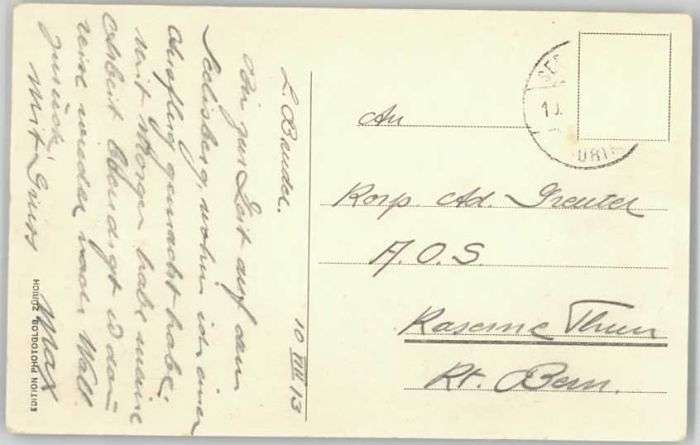 10 VIII 13
L. Bruder.
Bin zur Zeit auf dem
Seelisberg, wohin ich einen
Ausflug gemacht habe.
Mit Morgen habe meine
Arbeit beendigt u. dann
reise wieder nach
zurück.
Mit Gruss
Max
An
Korp. Ad. Greuter
A.O.S.
Kaserne Thun
Kt. Bern.
EDITION PHOTOGLOB, ZÜRICH